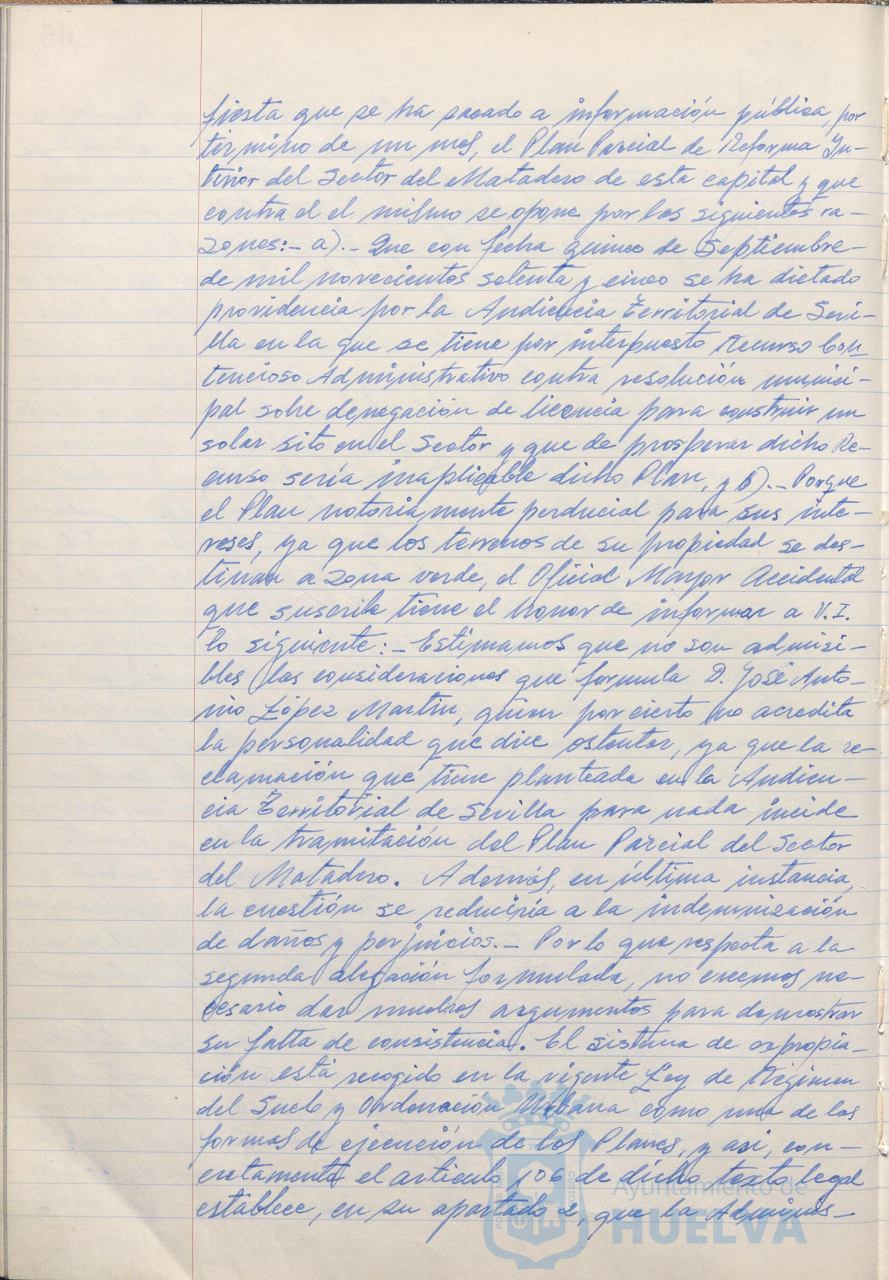 fiesta que se ha sacado a información pública, por
término de un mes, el Plan Parcial de Reforma In-
terior del Sector del Matadero de esta capital y que
contra el el mismo se opone por las siguientes ra-
zones:- a).- Que con fecha quince de Septiembre-
de mil novecientos setenta y cinco se ha dictado
providencia por la Audiencia Territorial de Sevi-
lla en la que se tiene por interpuesto Recurso Con-
tencioso Administrativo contra resolución munici-
pal sobre denegación de licencia para construir un
solar sito en el Sector y que de prosperar dicho Re-
curso sería inaplicable dicho Plan, y b).- Porque
el Plan notoriamente perducial para sus inte-
reses, ya que los terrenos de su propiedad se des-
tinan a zona verde, el Oficial Mayor Accidental
que suscribe tiene el honor de informar a V.I.
lo siguiente:- Estimamos que no son admisi-
bles las consideraciones que formula D. José Anto-
nio López Martín, quien por cierto no acredita
la personalidad que dice ostentar, ya que la re-
clamación que tiene planteada en la Audien-
cia Territorial de Sevilla para nada incide
en la tramitación del Plan Parcial del Sector
del Matadero. Además, en última instancia,
la cuestión se reduciría a la indemnización
de daños y perjuicios.- Por lo que respecta a la
segunda alegación formulada, no creemos ne-
cesario dar muchos argumentos para demostrar
su falta de consistencia. El sistema de expropia-
ción está recogido en la vigente Ley de Régimen
del Suelo y Ordenación Urbana como una de las
formas de ejecución de los Planes, y asi, con-
cretamente el artículo 106 de dicho texto legal
establece, en su apartado 2, que la Adminis-
Ayuntamiento de
HUELVA